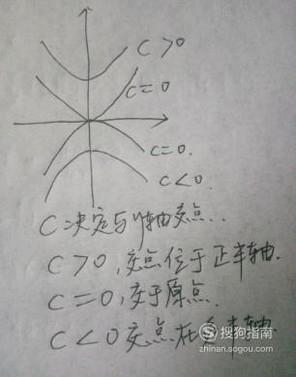 C>0
C=0
C=0.
C<0.
C决定与y轴交点..
C>0,交点位于正半轴.
C=0,交于原点.
C<0交点在负半轴
搜狗指南
zhinan.sogou.com